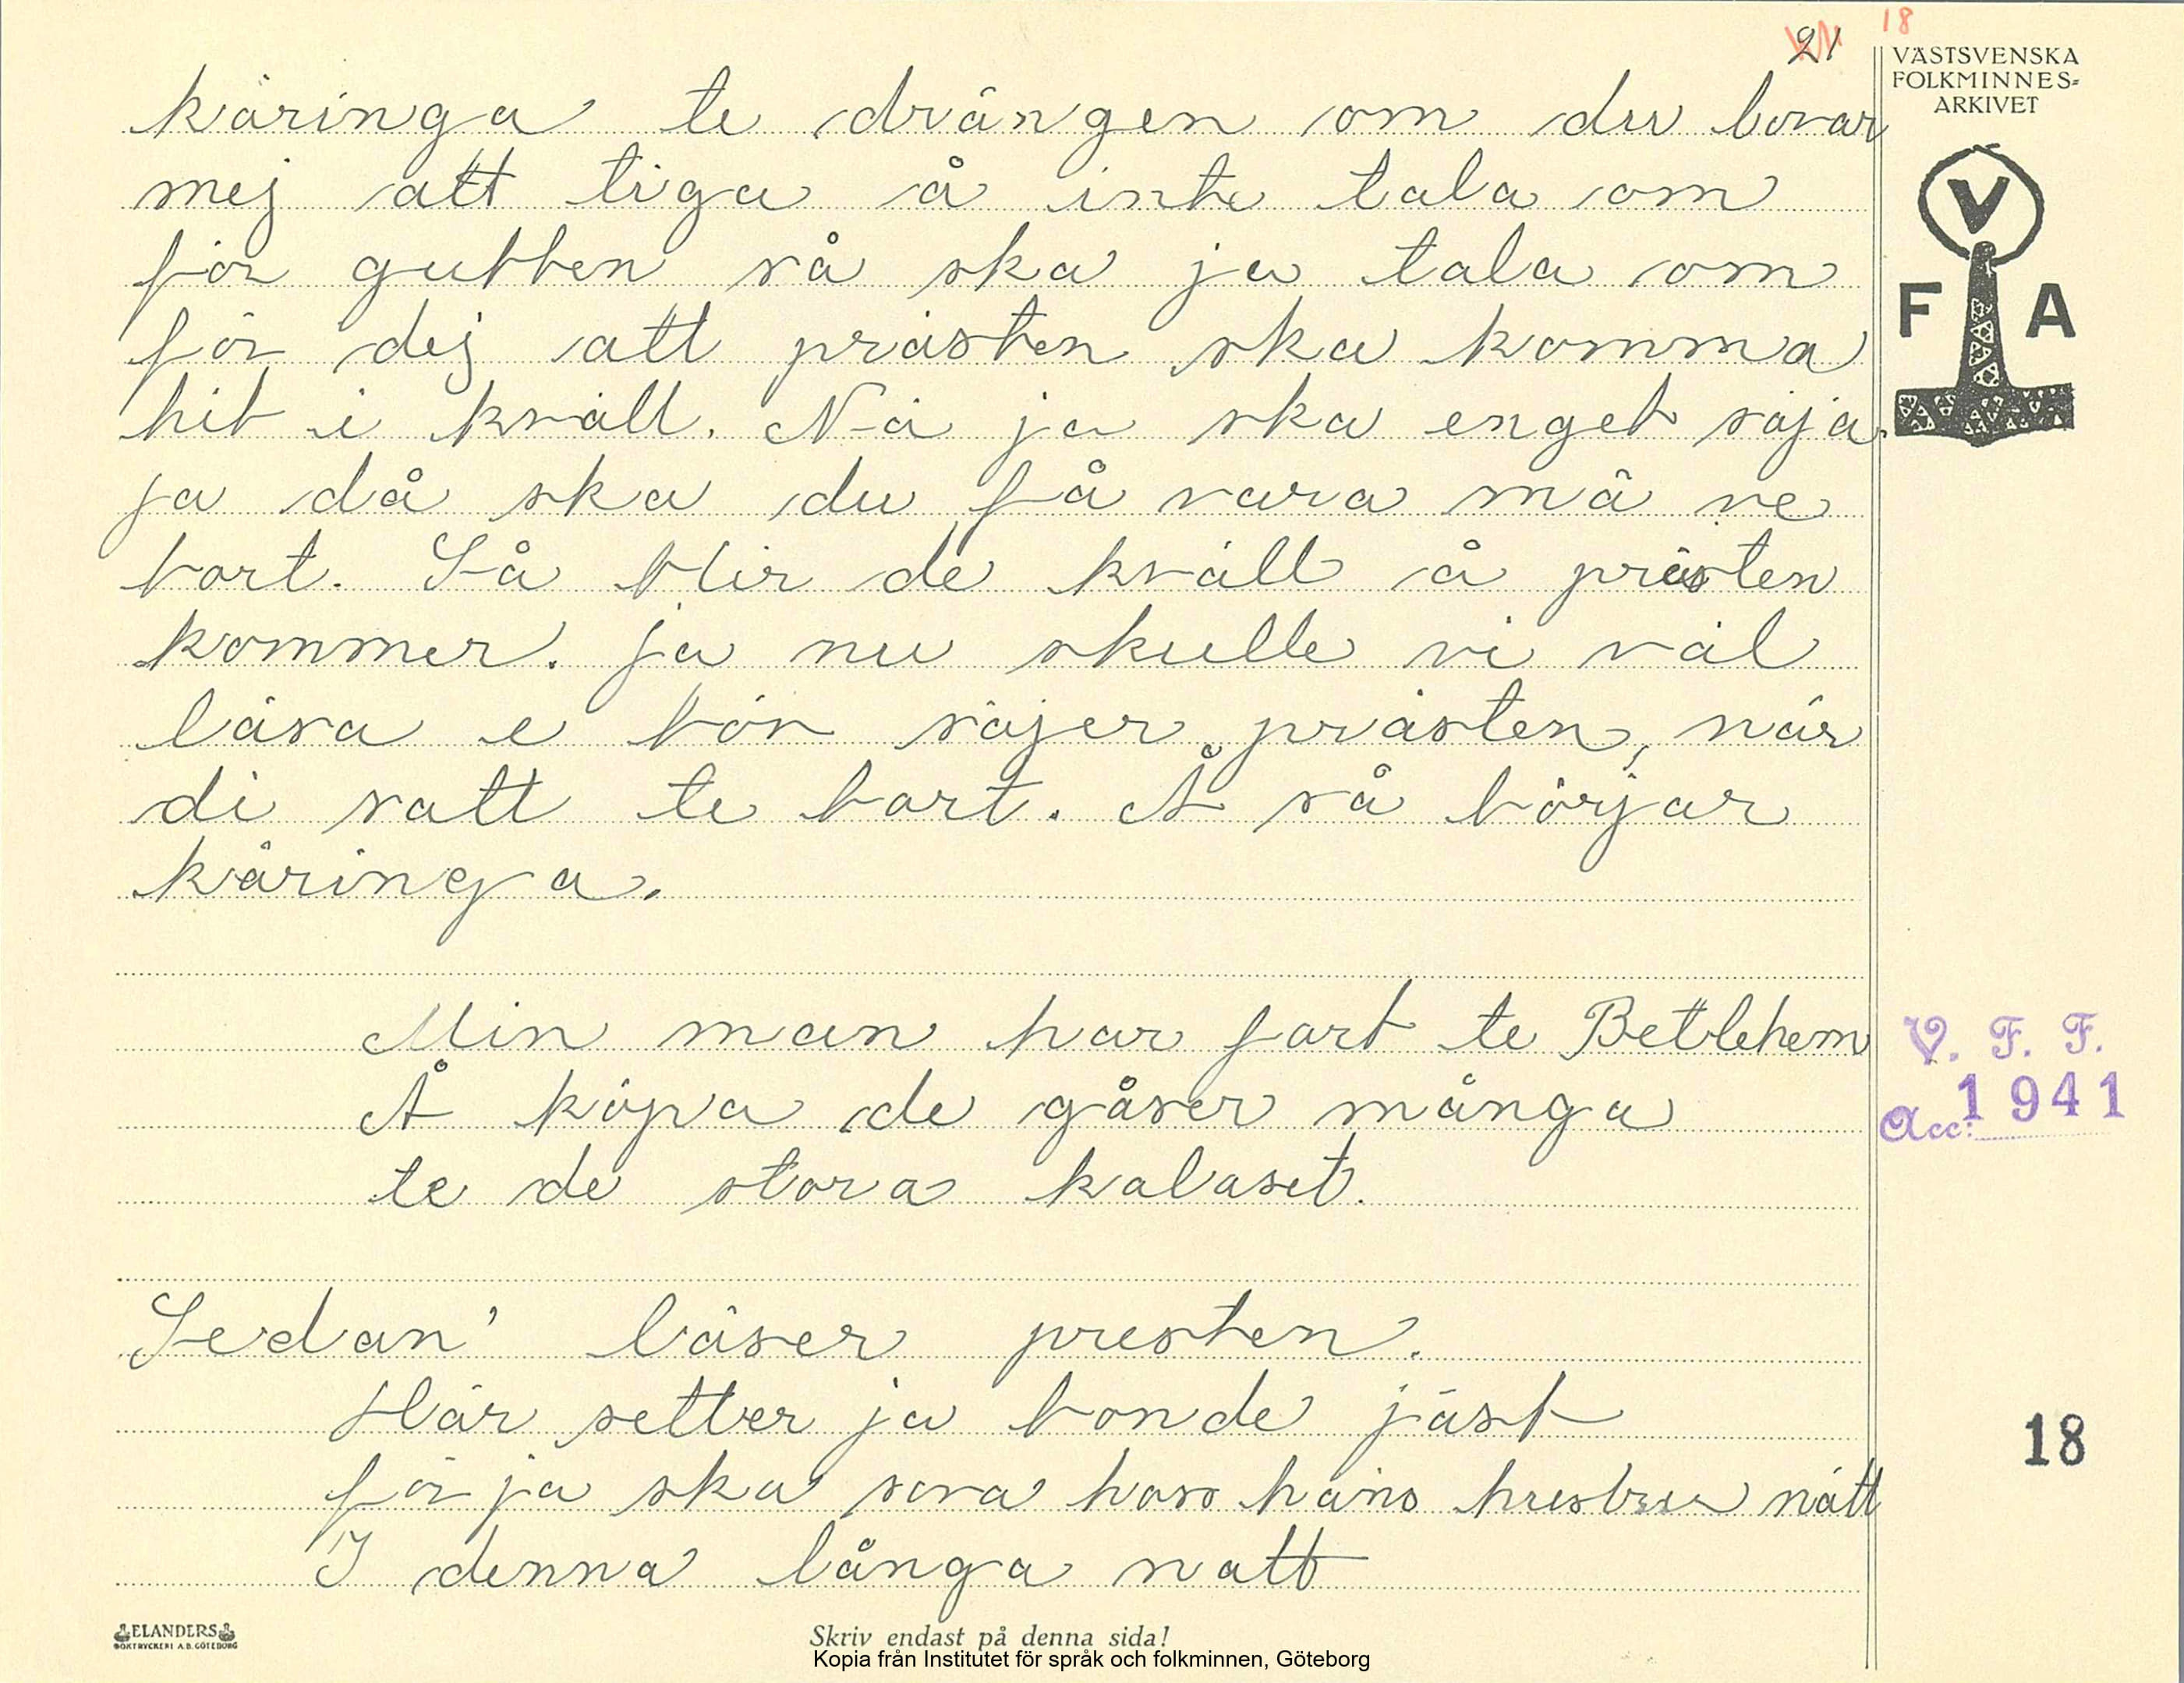 21 18
VÄSTSVENSKA
FOLKMINNES=
ARKIVET
V
F A
käringa te drängen om du lovar
mej att tiga å inte tala om
för gubben så ska ja tala om
för dej att prästen ska komma
hit i kväll. Nä ja ska enget säja.
ja då ska du få vara mä ve
bort. Så blir de kväll å prästen
kommer. ja nu skulle vi väl
läsa e bön säjer prästen, när
di satt te bort. Å så börjar
käringa.
Min man har fart te Betlehem
Å köpa de gåser många
te de stora kalaset.
V. F. F.
Acc: 1941
Sedan läser presten.
Här setter ja bonde jäst
för ja ska sova hoss häns nätt
I denna långa natt
18
ELANDERS
BOKTRYCKERI A.B. GÖTEBORG
Skriv endast på denna sida!
Kopia från Institutet för språk och folkminnen, Göteborg